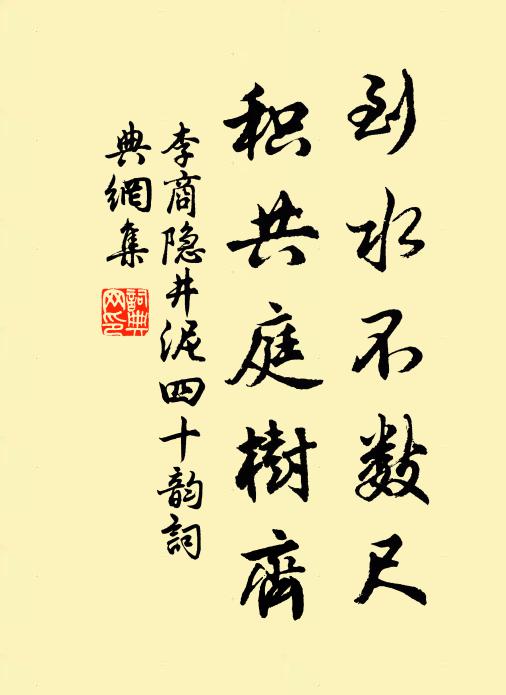 到水不数尺
积共庭樹齊
李商隐井泥四十韵詞
典網集
詞典
网印